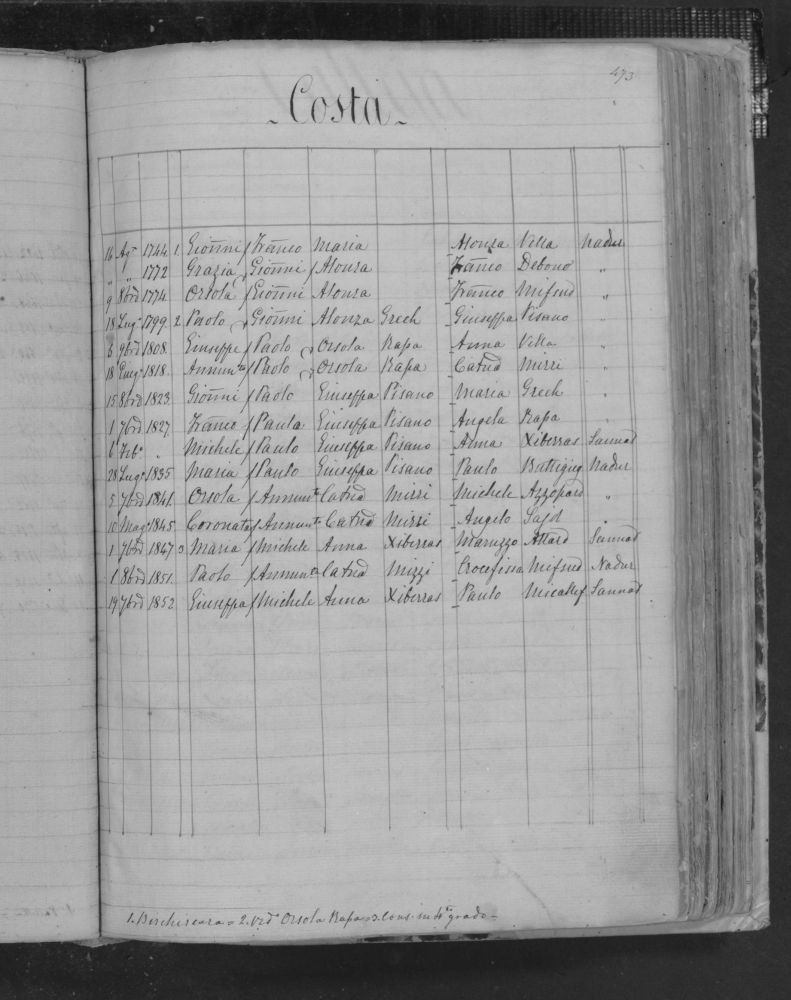 473
- Costa -
16 Agto 1744 1. Gionni f Franco Maria Alonza Vella Nadur
" " 1772 Grazia Gionni f Alonza Franco Debono "
9 8brd 1774 Orsola f Gionni Alonza Franco Mifsud "
18 Lugo 1799 2. Paolo Gionni Alonza Grech Giuseppa Pisano "
6 9brd 1808 Giuseppe f Paolo Orsola Rapa Anna Vella "
18 1818 Annunto f Paolo Orsola Rapa Catnd Mizzi "
15 8brd 1823 Gionni f Paolo Giuseppa Pisano Maria Grech "
1 7brd 1827 Franco f Paulo Giuseppa Pisano Angela Rapa "
6 Febo " Michele f Paulo Giuseppa Pisano Anna Xiberras Sannat
28 Lugo 1835 Maria f Paulo Giuseppa Pisano Paulo Buttigieg Nadur
5 7brd 1841 Orsola f Annunto Catnd Mizzi Michele Azzopard "
10 Mago 1845 Coronata f Annunto Catnd Mizzi Angelo Said "
1 7brd 1847 3 Maria f Michele Anna Xiberras Maruzzo Attard Sannat
1 8brd 1851 Paolo f Annunto Catnd Mizzi Crocefissa Mifsud Nadur
19 7brd 1852 Giuseppa f Michele Anna Xiberras Paulo Micallef Sannat
1. Birchircara = 2. Vedo Orsola Rapa = 3. Cons. in 4o grado -